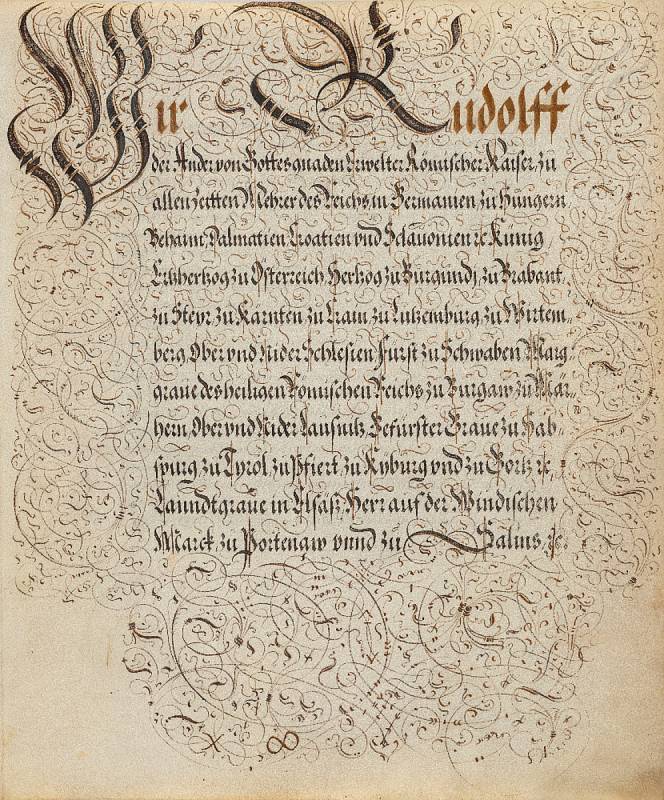 Wir Rudolff
der Ander von Gottes gnaden Erwelter Römischer Kaiser, zu
allen zeitten Mehrer des Reichs in Germanien zu Hungern,
Behaim, Dalmatien, Croatien vnd Sclauonien ꝛc Kunig,
Ertzhertzog zu Osterreich, Hertzog zu Burgundj, zu Brabant,
zu Steyr, zu Karnten, zu Crain, zu Lutzemburg, zu Wirtem-
berg, Ober vnd Nider Schlesien, Furst zu Schwaben, Marg-
graue des heiligen Romischen Reichs, zu Burgaw, zu Mär-
hern, Ober vnd Nider Lausnitz, Gefurster Graue zu Hab-
spurg, zu Tyrol, zu Pfiert, zu Kyburg vnd zu Gortz ꝛc,
Lanndtgraue in Elsäß, Herr auf der Windischen
Marck, zu Portenaw vnnd zu Salins, ꝛc.